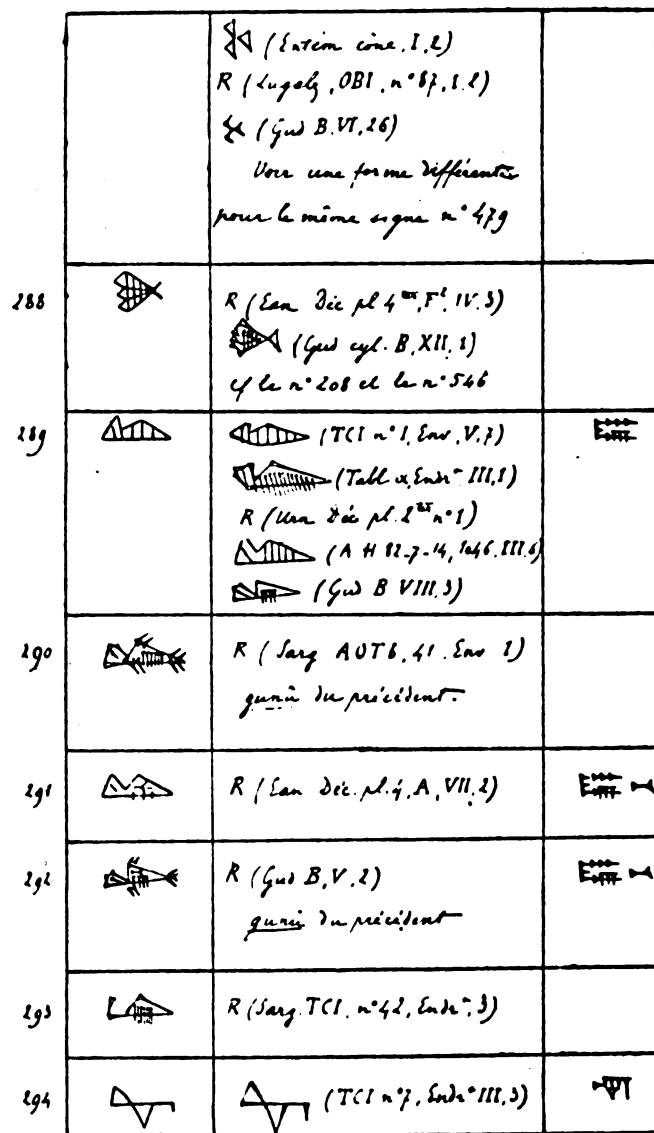 (Entém cône, I, 2)
R (Lugalz, OBI, n° 87, I, 2)
(Gud B. VI, 26)
Voir une forme différente
pour le même signe n° 479
288 R (Ean Déc pl 4 bis, F², IV, 3)
(Gud cyl. B, XII, 1)
cf le n° 208 et le n° 546
289 (TCI n° 1, Env, V, 7)
(Tabl α, Endr III, 1)
R (Urn Déc pl. 2 bis n° 1)
(A H 82-7-14, 1046, III, 6)
(Gud B VIII, 3)
290 R (Sarg AOTb, 41. Env 1)
gunû du précédent.
291 R (Ean Déc. pl. 4, A, VII, 2)
292 R (Gud B, V, 2)
gunû du précédent
293 R (Sarg. TCI, n° 42, Endr, 3)
294 (TCI n° 7, Endr III, 3)